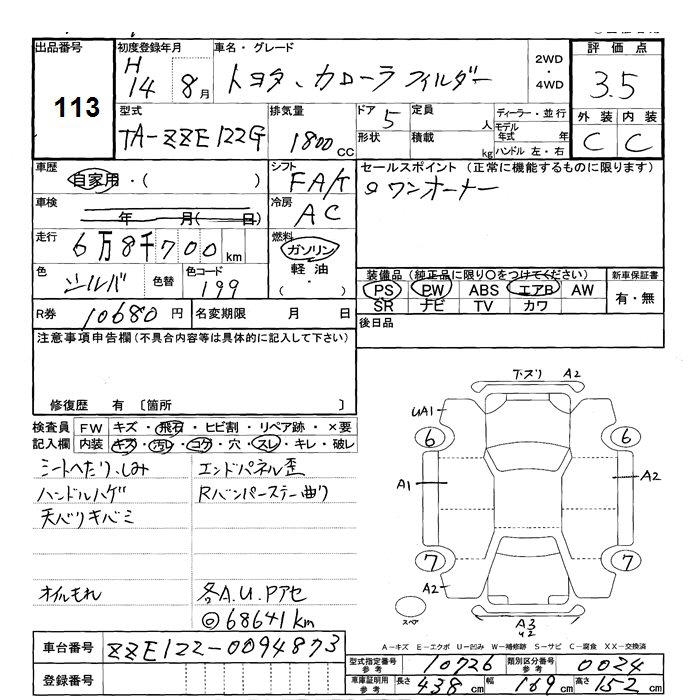 出品番号 初度登録年月 車名・グレード 評価点
113 H14 8月 トヨタ、カローラフィルダー 2WD・4WD 3.5
外装 内装
C C
型式 排気量 ドア 定員 ディーラー・並行
TA-ZZE122G 1800CC 5 人 モデル年式 年
形状 積載 kg ハンドル 左・右
車歴 シフト セールスポイント（正常に機能するものに限ります）
自家用・( ) FA/T ワンオーナー
車検 冷房
年 月( 日) AC
走行 燃料
6万8千700km ガソリン
軽油
・
( )
色 色替 色コード
シルバ 199
装備品（純正品に限り○をつけてください） 新車保証書
PS PW ABS エアB AW 有・無
SR ナビ TV カワ
R券 10680円 名変期限 月 日
後日品
注意事項申告欄（不具合内容等は具体的に記入して下さい）
修復歴 有〔箇所 〕
検査員記入欄 FW キズ・飛石・ヒビ割・リペア跡・×要
内装 キズ・汚レ・コゲ・穴・スレ・キレ・破レ
シートへたり、しみ エンドパネル歪
ハンドルハゲ Rバンパーステー曲り
天バリキバミ
オイルもれ 各A.U.Pアセ
◎68641km
下ズリ A2
UA1
6 6
A1 A2
7 7
A2
スペア
A3
U2
A－キズ E－エクボ U－凹み W－補修跡 S－サビ C－腐食 XX－交換済
車台番号 ZZE122-0094873
登録番号
型式指定番号参考 10726 類別区分番号参考 0024
車庫証明用参考 長さ 438cm 幅 169cm 高さ 152cm